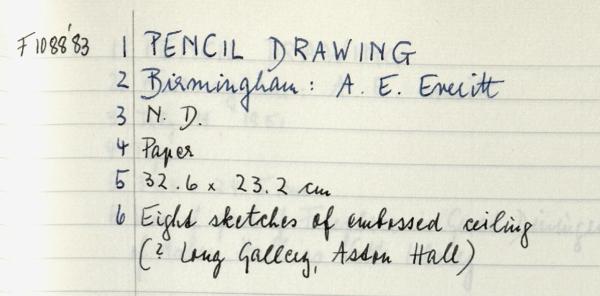 F1088'83 1 PENCIL DRAWING
2 Birmingham: A. E. Everitt
3 N. D.
4 Paper
5 32.6 x 23.2 cm
6 Eight sketches of embossed ceiling
(? Long Gallery, Aston Hall)